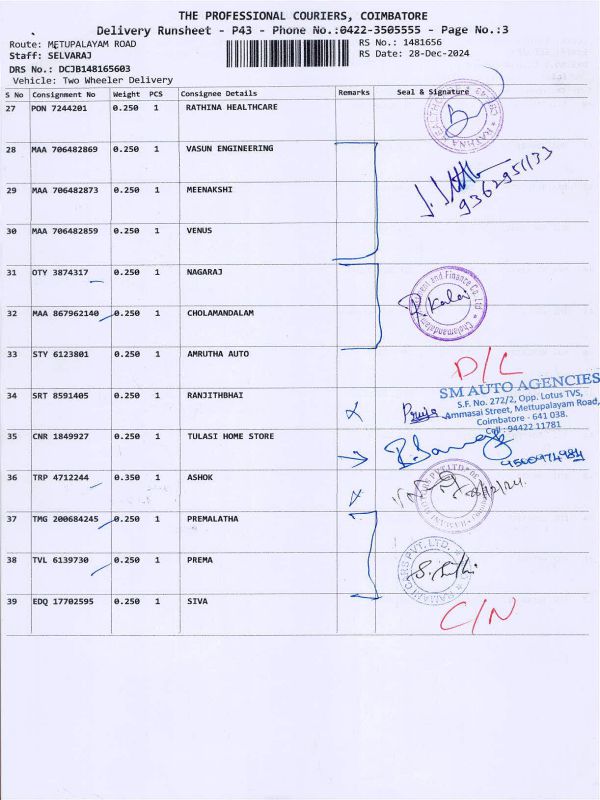 THE PROFESSIONAL COURIERS, COIMBATORE
Delivery Runsheet - P43 - Phone No.:0422-3505555 - Page No.:3
Route: METUPALAYAM ROAD RS No.: 1481656
Staff: SELVARAJ RS Date: 28-Dec-2024
DRS No.: DCJB148165603
Vehicle: Two Wheeler Delivery
S No Consignment No Weight PCS Consignee Details Remarks Seal & Signature
27 PON 7244201 0.250 1 RATHINA HEALTHCARE
28 MAA 706482869 0.250 1 VASUN ENGINEERING
9362951133
29 MAA 706482873 0.250 1 MEENAKSHI
30 MAA 706482859 0.250 1 VENUS
31 OTY 3874317 0.250 1 NAGARAJ
R. Kalai
32 MAA 867962140 0.250 1 CHOLAMANDALAM
33 STY 6123801 0.250 1 AMRUTHA AUTO D/L
SM AUTO AGENCIES
34 SRT 8591405 0.250 1 RANJITHBHAI S.F. No. 272/2, Opp. Lotus TVS,
Ammasai Street, Mettupalayam Road,
Coimbatore - 641 038.
Cell : 94422 11781
35 CNR 1849927 0.250 1 TULASI HOME STORE
36 TRP 4712244 0.350 1 ASHOK
37 TMG 200684245 0.250 1 PREMALATHA
38 TVL 6139730 0.250 1 PREMA
39 EDQ 17702595 0.250 1 SIVA C/N